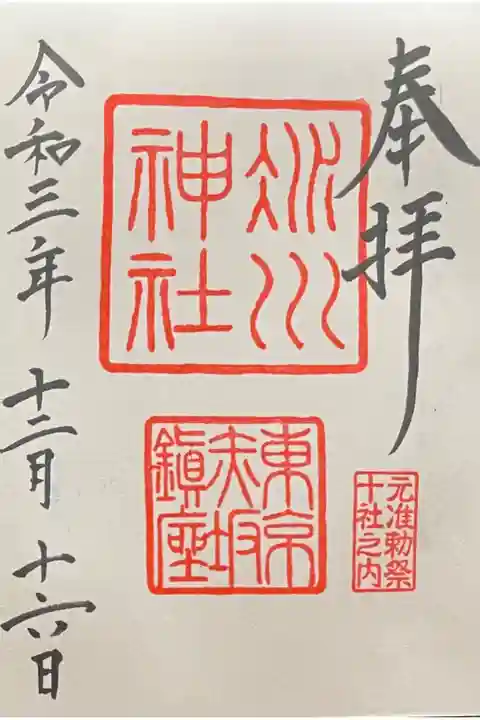 奉拝
氷川
神社
東京
赤坂
鎮座
元准勅祭
十社之内
令和三年十二月十六日